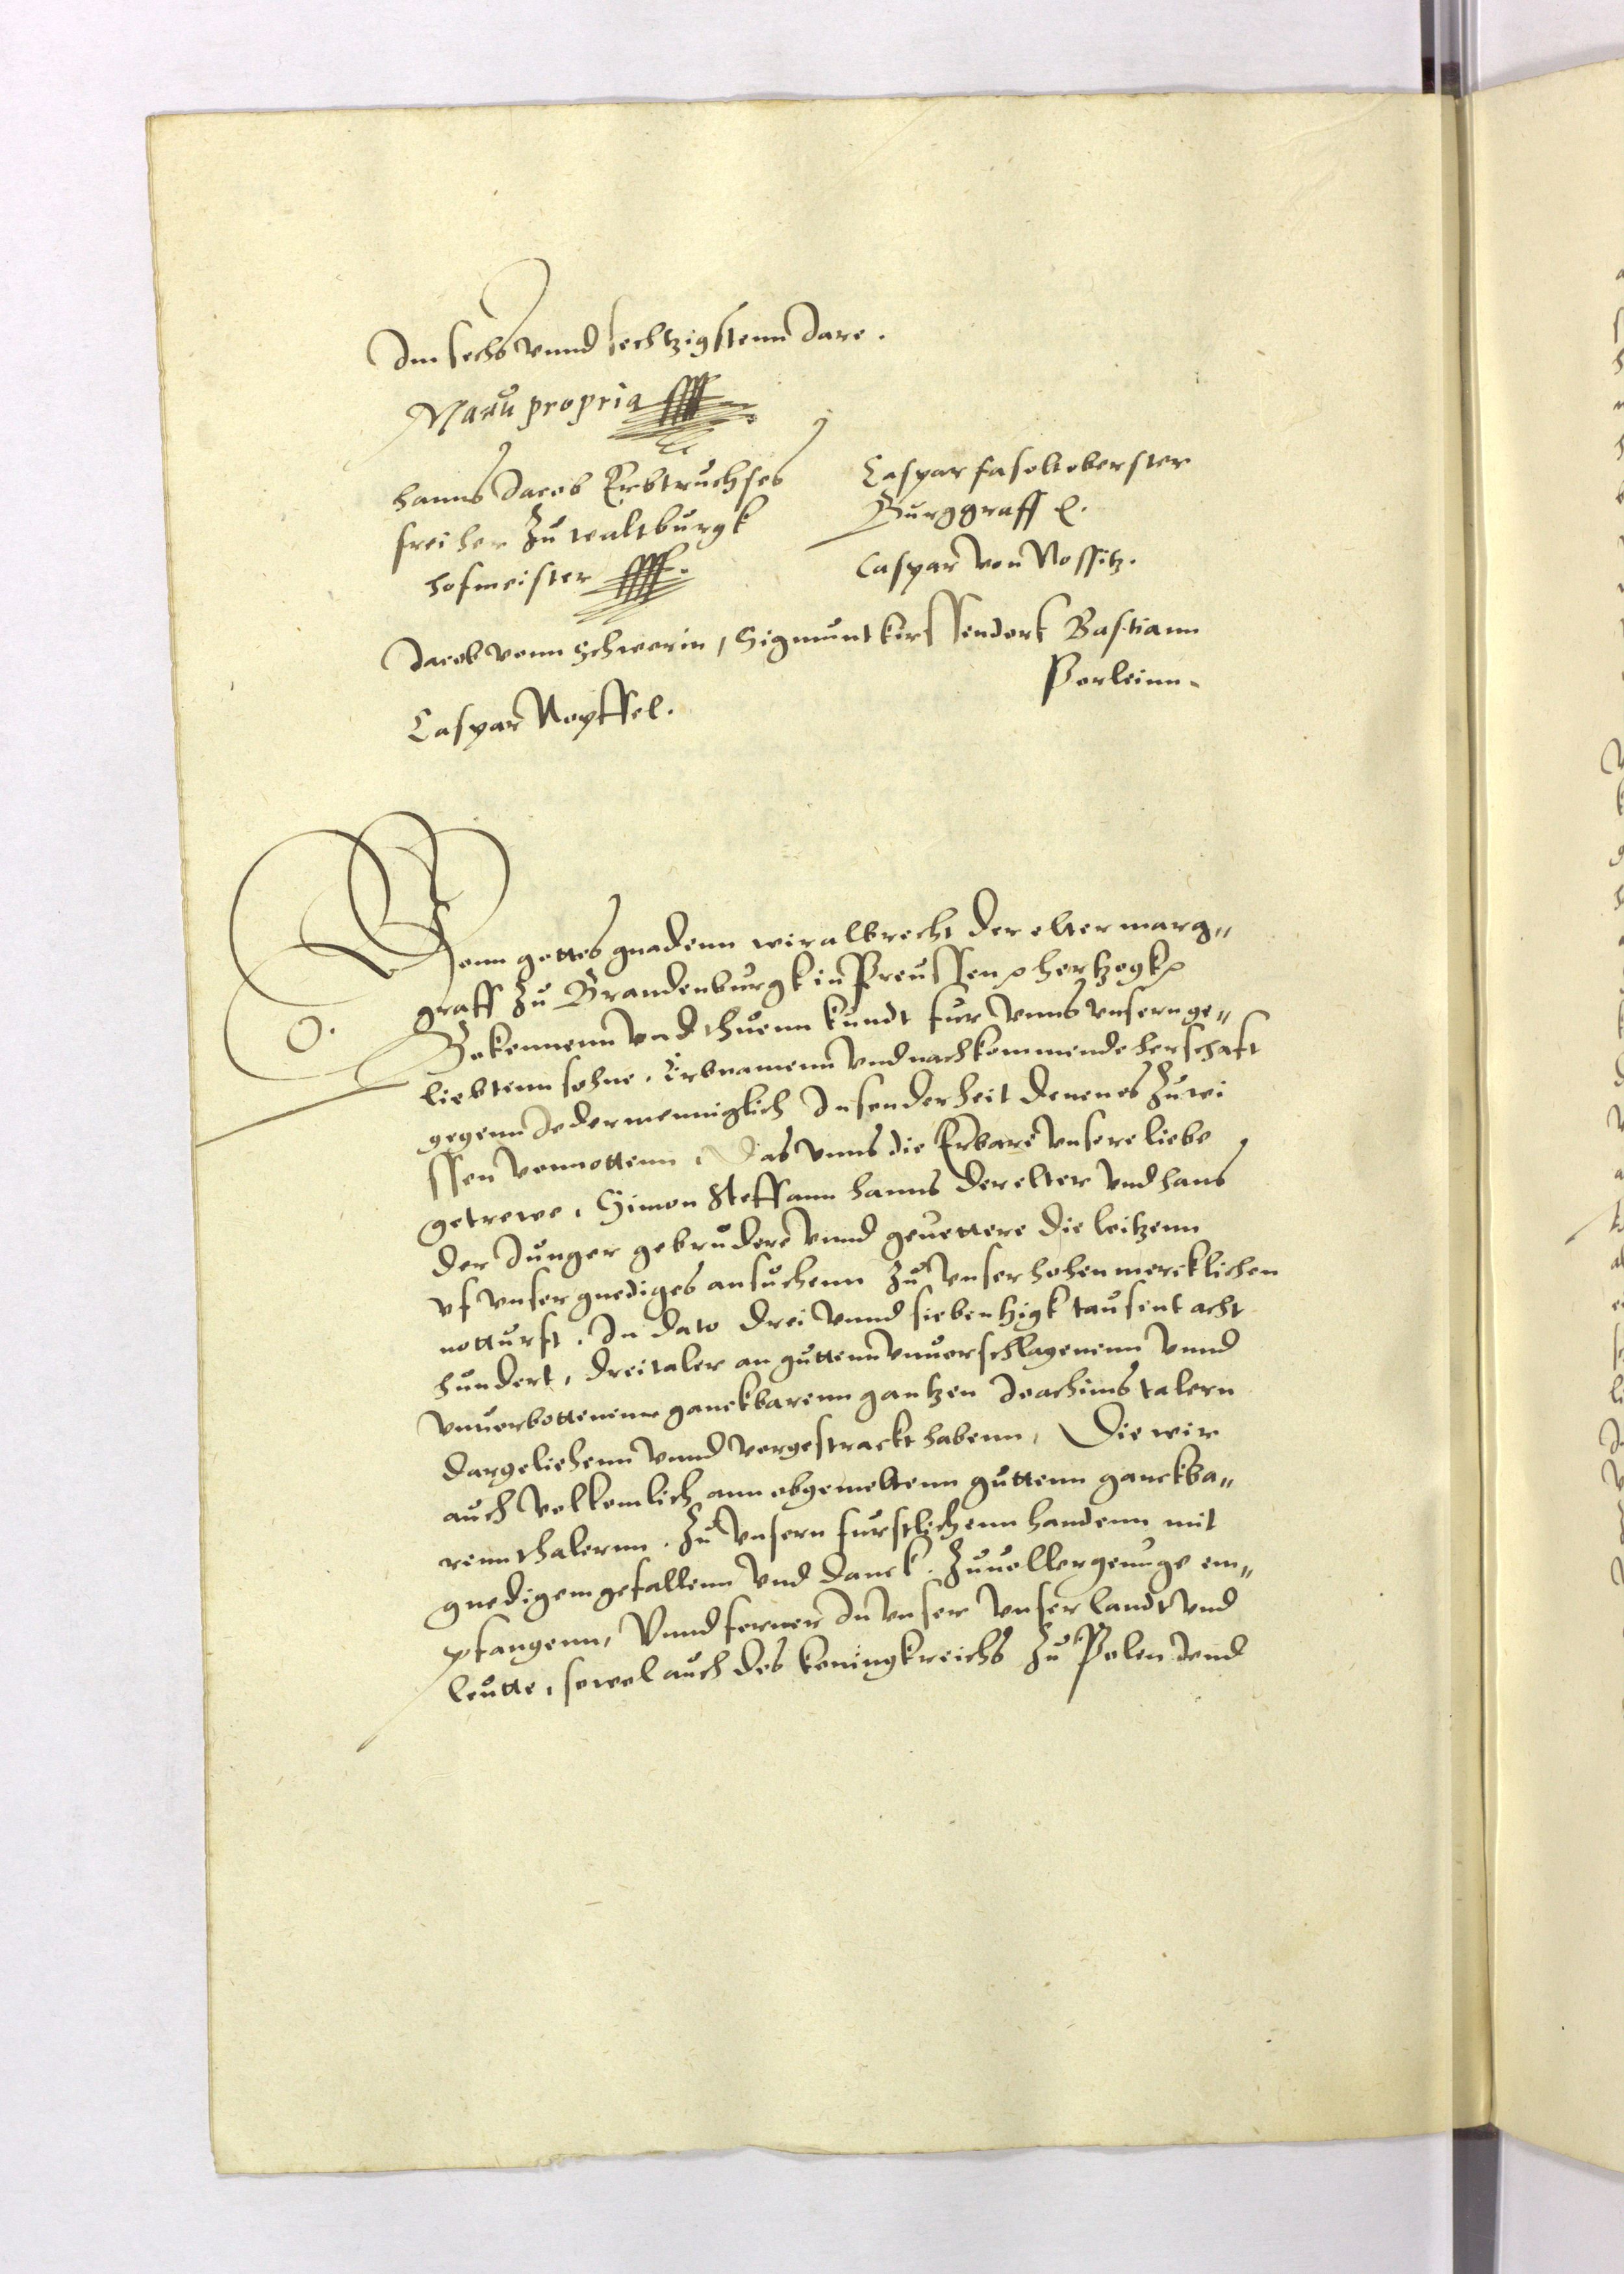 Im sechs vnnd sechtzigstenn Jare.
Manu propria
hanns Jacob Erbtruchses
freiher zu waltburgk
hofmeister
Caspar fasolt oberster
Burggraff
Caspar von Nostitz.
Jacob vonn Schwerin, Sigmunt kerssendork Bastiann
Perleinn.
Caspar Noptzel.
Vonn gottes gnadenn wir albrecht der elter marg„
graff zu Brandenburgk in Preussen hertzogk
O.
Bekennenn vnd thuenn kundt fur vnns vnsern ge„
liebtenn sohne. Erbnamenn vnd nachkommende herschaft
gegenn Jedermenniglich Insonderheit denen es zu wi
ssen vonnottenn, Das vnns die Erbare vnsere liebe
getrewe, Simon Steffann hanns der elter vnd hans
der Junger gebrudere vnnd geuettere die leitzenn
vf vnser gnediges ansuchenn zu vnser hohen mercklichen
notturft. In dato drei vnnd siebentzigk tausent acht
hundert, drei taler an guttenn vnuerschlagenenn vnnd
vnuerbottenenn ganckbarenn gantzen Joachimstalern
dargeliehenn vnnd vorgestrackt habenn, Die wir
auch volkomlich ann obgemeltenn guttenn ganckba„
renn thalernn. zu vnsern furstlichenn handenn mit
gnedigem gefallenn vnd danck. zu uoller genuge em„
pfangenn, Vnnd ferner In vnser vnser landt vnd
leutte, sowol auch des koningkreichs zu Polen vnd